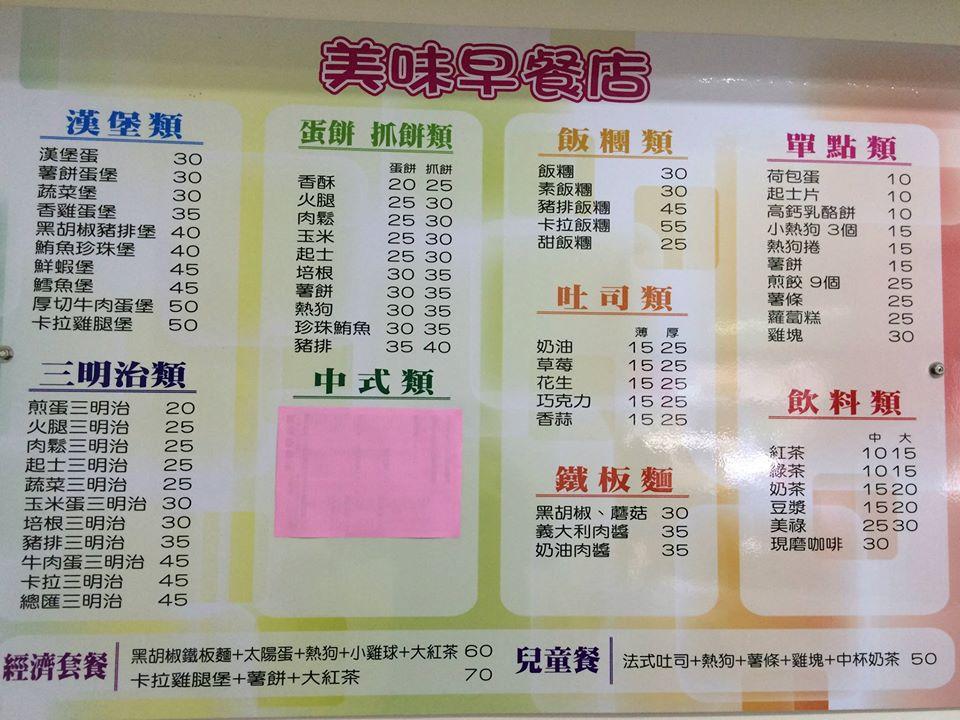 美味早餐店
漢堡類
漢堡蛋 30
薯餅蛋堡 30
蔬菜堡 30
香雞蛋堡 35
黑胡椒豬排堡 40
鮪魚珍珠堡 40
鮮蝦堡 45
鱈魚堡 45
厚切牛肉蛋堡 50
卡拉雞腿堡 50
三明治類
煎蛋三明治 20
火腿三明治 25
肉鬆三明治 25
起士三明治 25
蔬菜三明治 25
玉米蛋三明治 30
培根三明治 30
豬排三明治 35
牛肉蛋三明治 45
卡拉三明治 45
總匯三明治 45
蛋餅 抓餅類
蛋餅 抓餅
香酥 20 25
火腿 25 30
肉鬆 25 30
玉米 25 30
起士 25 30
培根 30 35
薯餅 30 35
熱狗 30 35
珍珠鮪魚 30 35
豬排 35 40
中式類
飯糰類
飯糰 30
素飯糰 30
豬排飯糰 45
卡拉飯糰 55
甜飯糰 25
吐司類
薄 厚
奶油 15 25
草莓 15 25
花生 15 25
巧克力 15 25
香蒜 15 25
鐵板麵
黑胡椒、蘑菇 30
義大利肉醬 35
奶油肉醬 35
單點類
荷包蛋 10
起士片 10
高鈣乳酪餅 10
小熱狗 3個 15
熱狗捲 15
薯餅 15
煎餃 9個 25
薯條 25
蘿蔔糕 25
雞塊 30
飲料類
中 大
紅茶 10 15
綠茶 10 15
奶茶 15 20
豆漿 15 20
美祿 25 30
現磨咖啡 30
經濟套餐
黑胡椒鐵板麵+太陽蛋+熱狗+小雞球+大紅茶 60
卡拉雞腿堡+薯餅+大紅茶 70
兒童餐
法式吐司+熱狗+薯條+雞塊+中杯奶茶 50